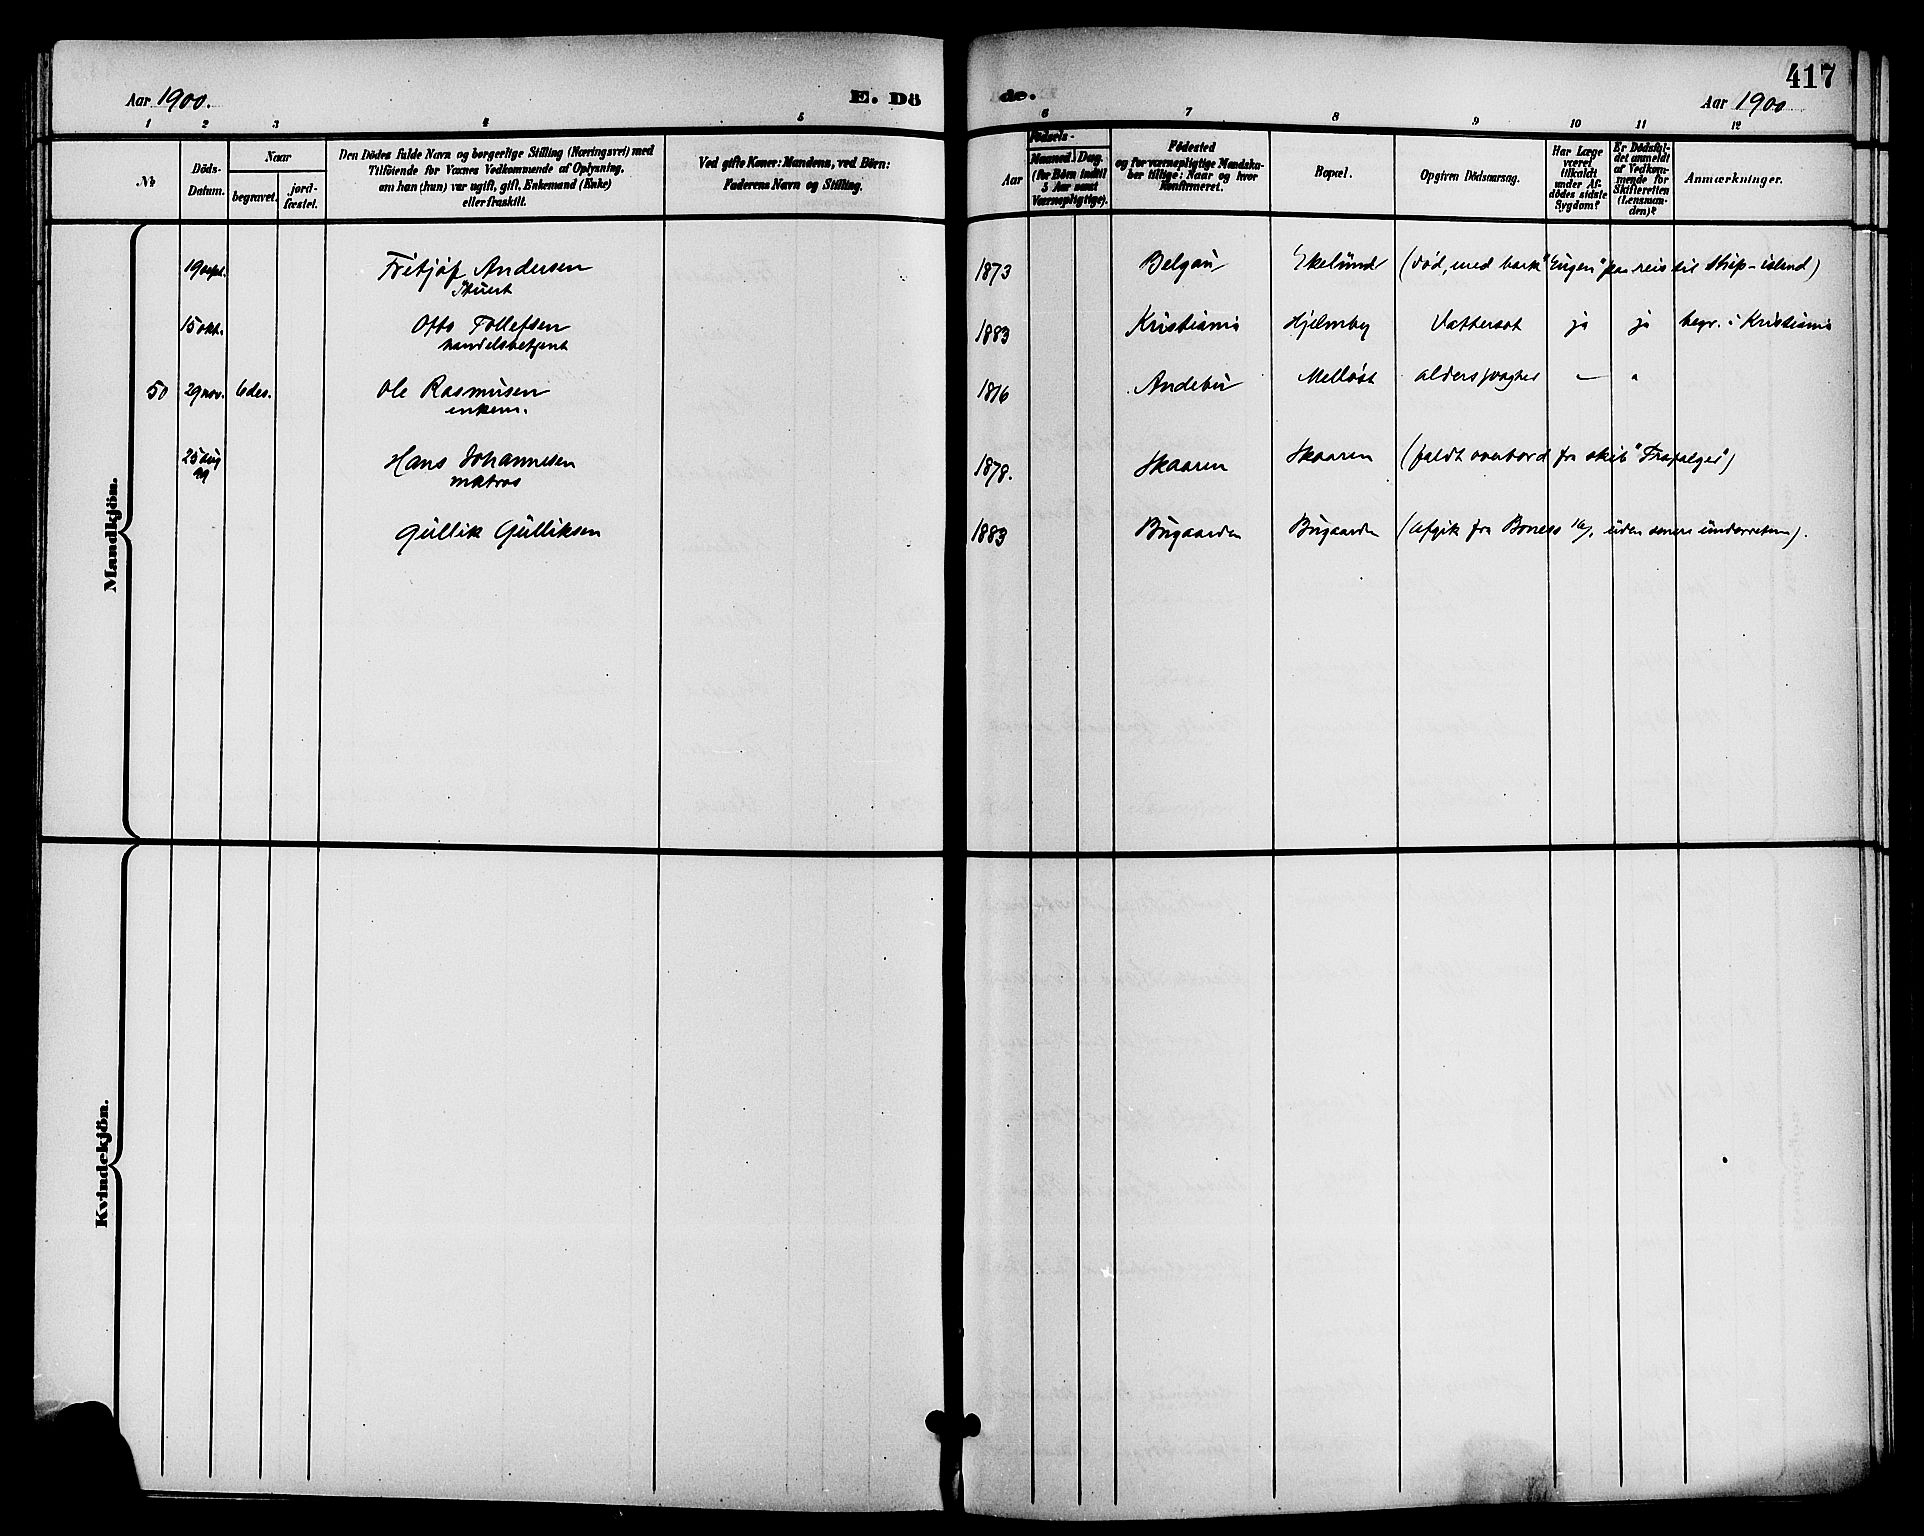 417
Aar 1900.
E. Dö
de.
Aar 1900
1 2 3 4 5 6 7 8 9 10 11 12
№
Döds-
Datum.
Naar
begravet.
jord-
fæstet.
Den Dödes fulde Navn og borgerlige Stilling (Næringsvei) med
Tilföiende for Voxnes Vedkommende af Oplysning,
om han (hun) var ugift, gift, Enkemand (Enke)
eller fraskilt.
Ved gifte Koner: Mandens, ved Börn:
Faderens Navn og Stilling.
Aar
Födsels-
Maaned. Dag.
(for Börn indtil
5 Aar samt
Værnepligtige).
Födested
og for værnepligtige Mandska-
ber tillige: Naar og hvor
Konfirmeret.
Bopæl.
Opgiven Dödsaarsag.
Har Læge
været
tilkaldt
under Af-
dödes sidste
Sygdom?
Er Dödsfal-
det anmeldt
af Vedkom-
mende for
Skifteretten
(Lensman-
den)?
Anmærkninger.
Mandkjön.
19 sept. Fritjof Andersen 1873 Ekelund (död, med bark "Eugen" paa reis til Ship-island)
Stuert
15 okt. Otto Tollefsen 1883 Kristiania Hjelmby Vattersot ja ja begr. i Kristiania
handelsbetjent
50 29 nov. 6 des. Ole Rasmusen 1816 Andebu Melløst aldersvaghed — "
enkem.
25 aug Hans Johannesen 1878. Skaaren Skaaren (faldt overbord fra skib "Trafalger")
99
matros
Gullik Gulliksen 1883 Bugaarden Bugaarden (afgik fra Boness uden senere underretn).
Kvindekjön.